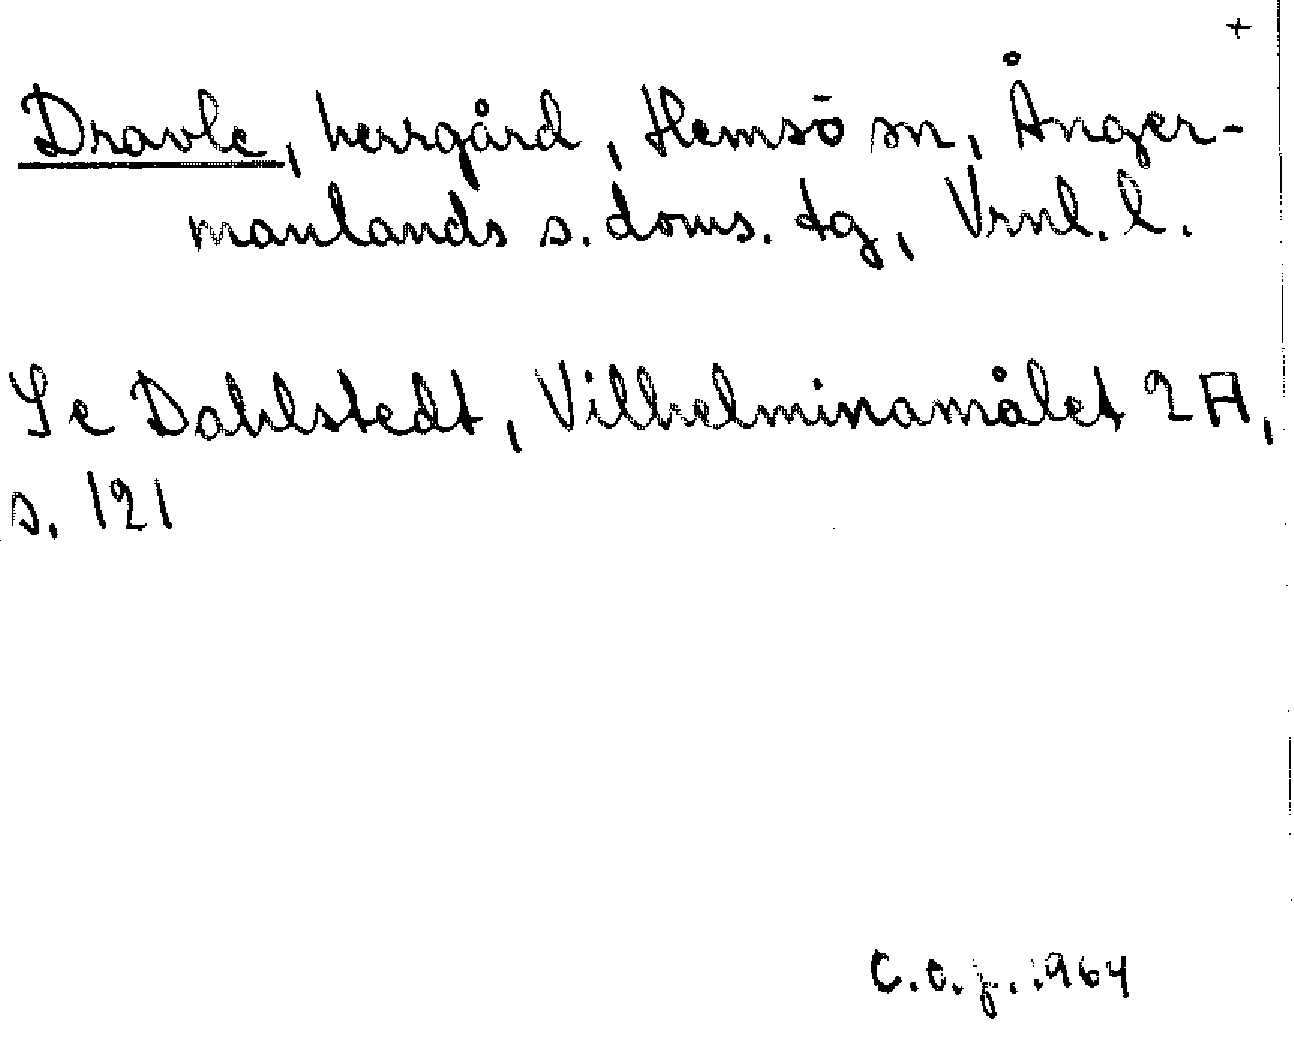 +
Dravle, herrgård, Hemsö sn, Ånger-
manlands s. doms. tg, Vrnl. l.
Se Dahlstedt, Vilhelminamålet 2A,
s. 121
C.O.J. 1964